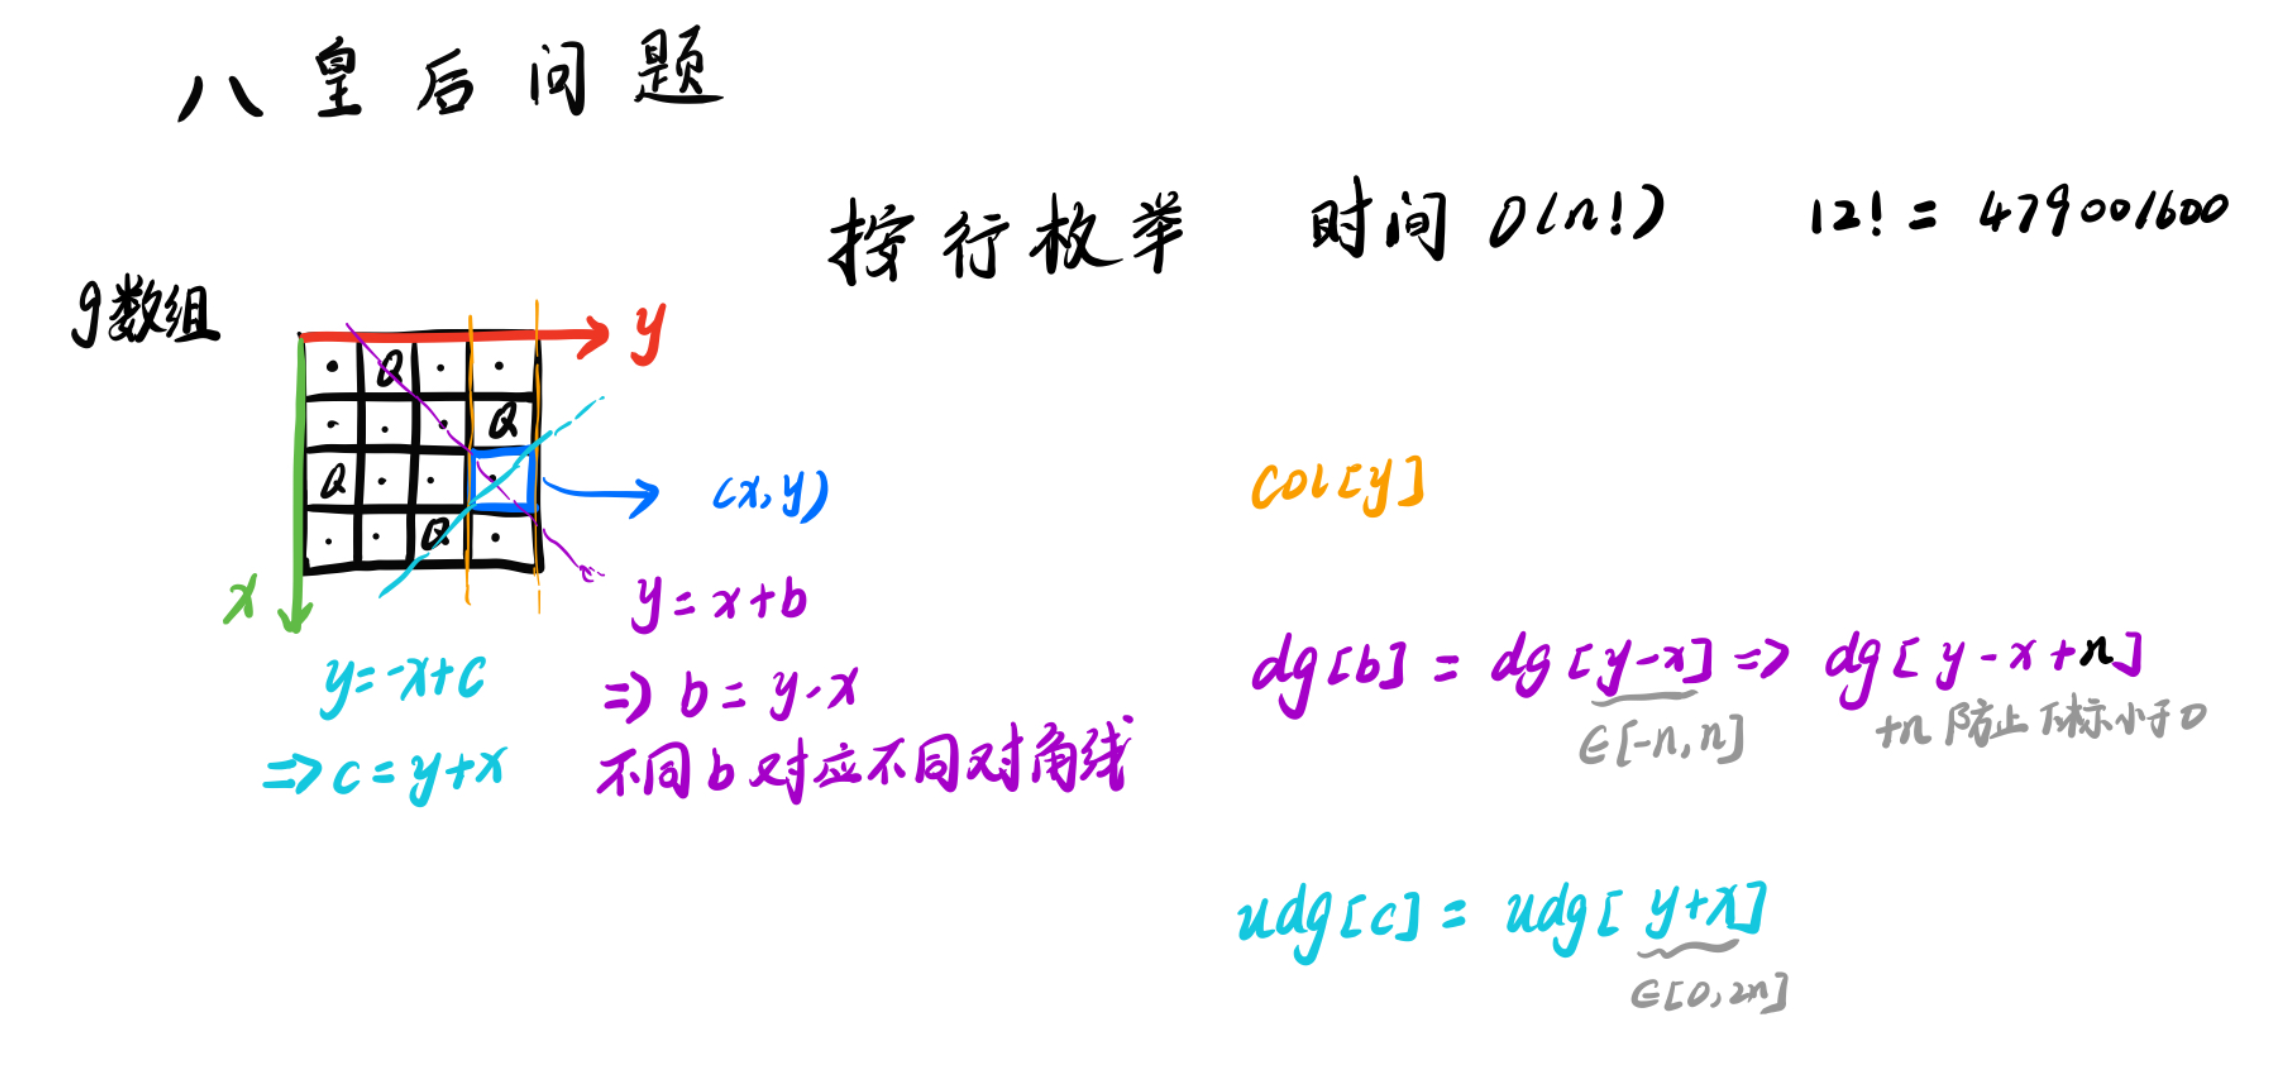 八皇后问题
按行枚举 时间 O(n!) 12! = 479001600
g数组
y
· Q · ·
· · · Q
Q · · ·
· · Q ·
x
(x,y)
col[y]
y = x+b
=> b = y-x
不同b对应不同对角线
y=-x+c
=> c = y+x
dg[b] = dg[y-x] => dg[y-x+n]
∈[-n,n]
+n 防止下标小于0
udg[c] = udg[y+x]
∈[0,2n]